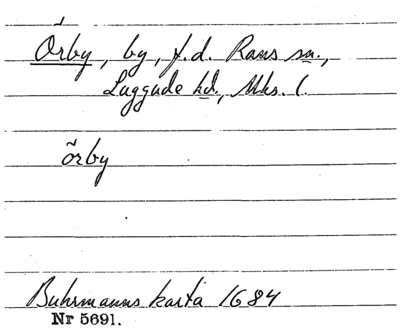 Örby, by, f.d. Raus sn.,
Luggude hd., Mhs. l.
örby
Buhrmanns karta 1684
Nr 5691.